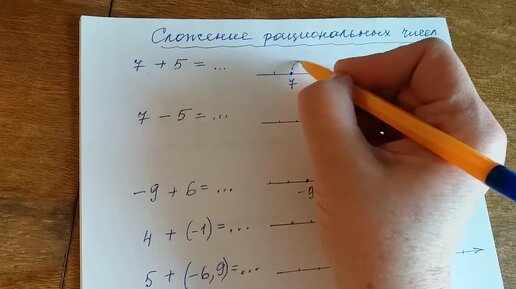 Сложение рациональных чисел
7 + 5 = ...
7
7 - 5 = ...
-9 + 6 = ...
-9
4 + (-1) = ...
5 + (-6,9) = ...